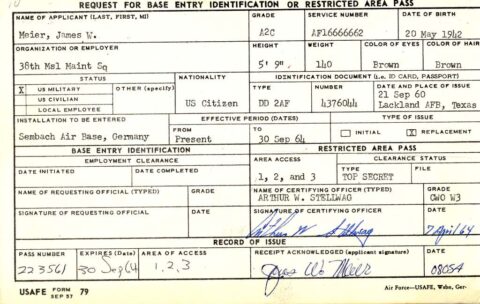 REQUEST FOR BASE ENTRY IDENTIFICATION OR RESTRICTED AREA PASS
NAME OF APPLICANT (LAST, FIRST, MI) GRADE SERVICE NUMBER DATE OF BIRTH
Meier, James W. A2C AF16666662 20 May 1942
ORGANIZATION OR EMPLOYER HEIGHT WEIGHT COLOR OF EYES COLOR OF HAIR
38th Msl Maint Sq 5' 9" 140 Brown Brown
STATUS NATIONALITY IDENTIFICATION DOCUMENT (i.e. ID CARD, PASSPORT)
X US MILITARY OTHER (specify) TYPE NUMBER DATE AND PLACE OF ISSUE
US CIVILIAN 21 Sep 60
LOCAL EMPLOYEE US Citizen DD 2AF 4376044 Lackland AFB, Texas
INSTALLATION TO BE ENTERED EFFECTIVE PERIOD (DATES) TYPE OF ISSUE
Sembach Air Base, Germany FROM Present TO 30 Sep 64 INITIAL X REPLACEMENT
BASE ENTRY IDENTIFICATION RESTRICTED AREA PASS
EMPLOYMENT CLEARANCE AREA ACCESS CLEARANCE STATUS
DATE INITIATED DATE COMPLETED 1, 2, and 3 TYPE TOP SECRET FILE
NAME OF REQUESTING OFFICIAL (TYPED) GRADE NAME OF CERTIFYING OFFICER (TYPED) GRADE
ARTHUR W. STELLWAG CWO W3
SIGNATURE OF REQUESTING OFFICIAL DATE SIGNATURE OF CERTIFYING OFFICER DATE
Arthur W Stellwag 7 April 64
RECORD OF ISSUE
PASS NUMBER EXPIRES (Date) AREA OF ACCESS RECEIPT ACKNOWLEDGED (applicant signature) DATE
223561 30 Sep 64 1,2,3 James W Meier
USAFE FORM SEP 57 79 Air Force—USAFE, Wsbn, Ger-